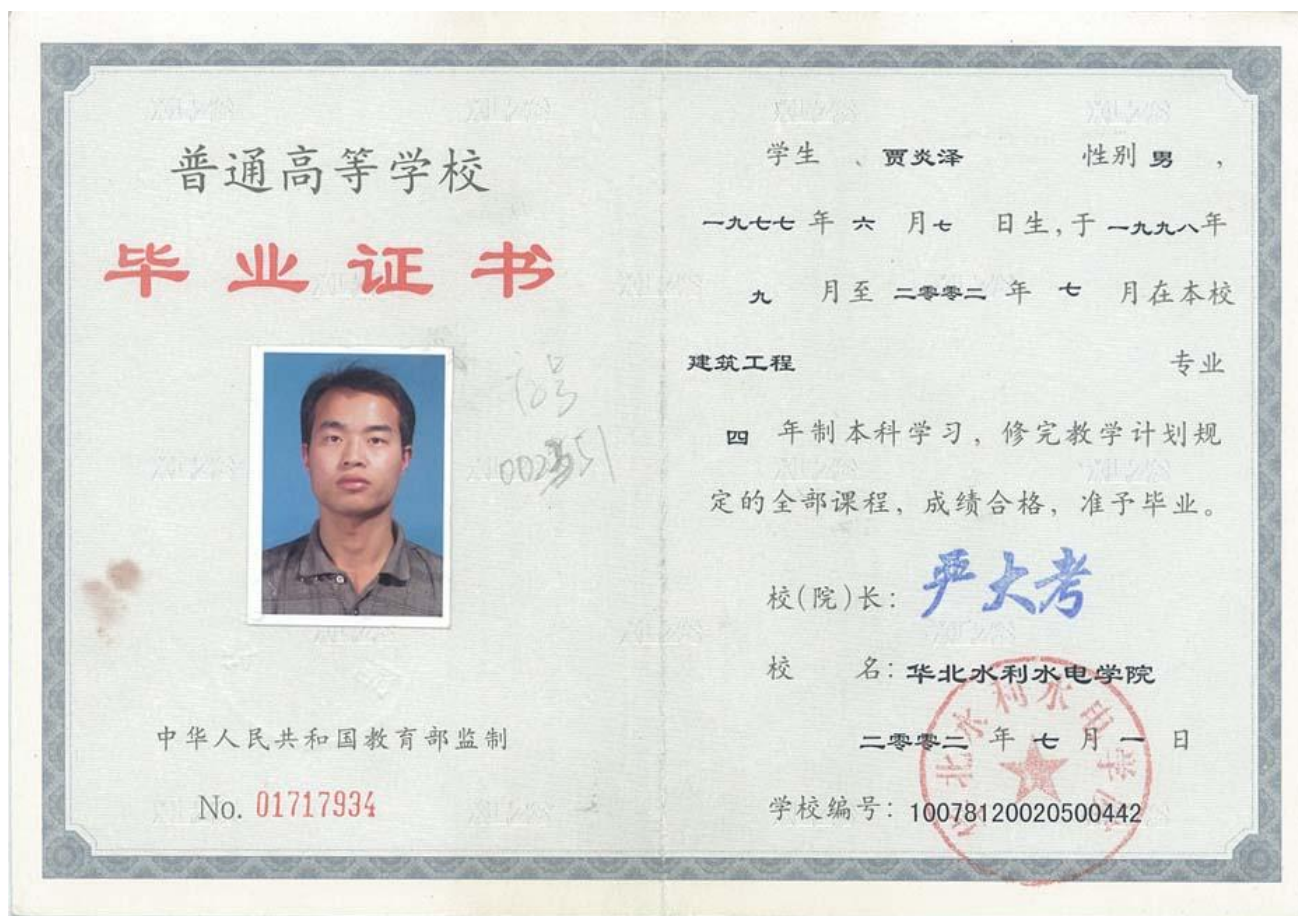 普通高等学校
毕业证书
中华人民共和国教育部监制
No. 01717934
学生、贾炎泽 性别男,
一九七七年六月七日生,于一九九八年
九月至二零零二年七月在本校
建筑工程 专业
四年制本科学习,修完教学计划规
定的全部课程,成绩合格,准予毕业。
校(院)长:严大考
校 名:华北水利水电学院
二零零二年七月一日
学校编号:100781200205004​42
华北水利水电学院